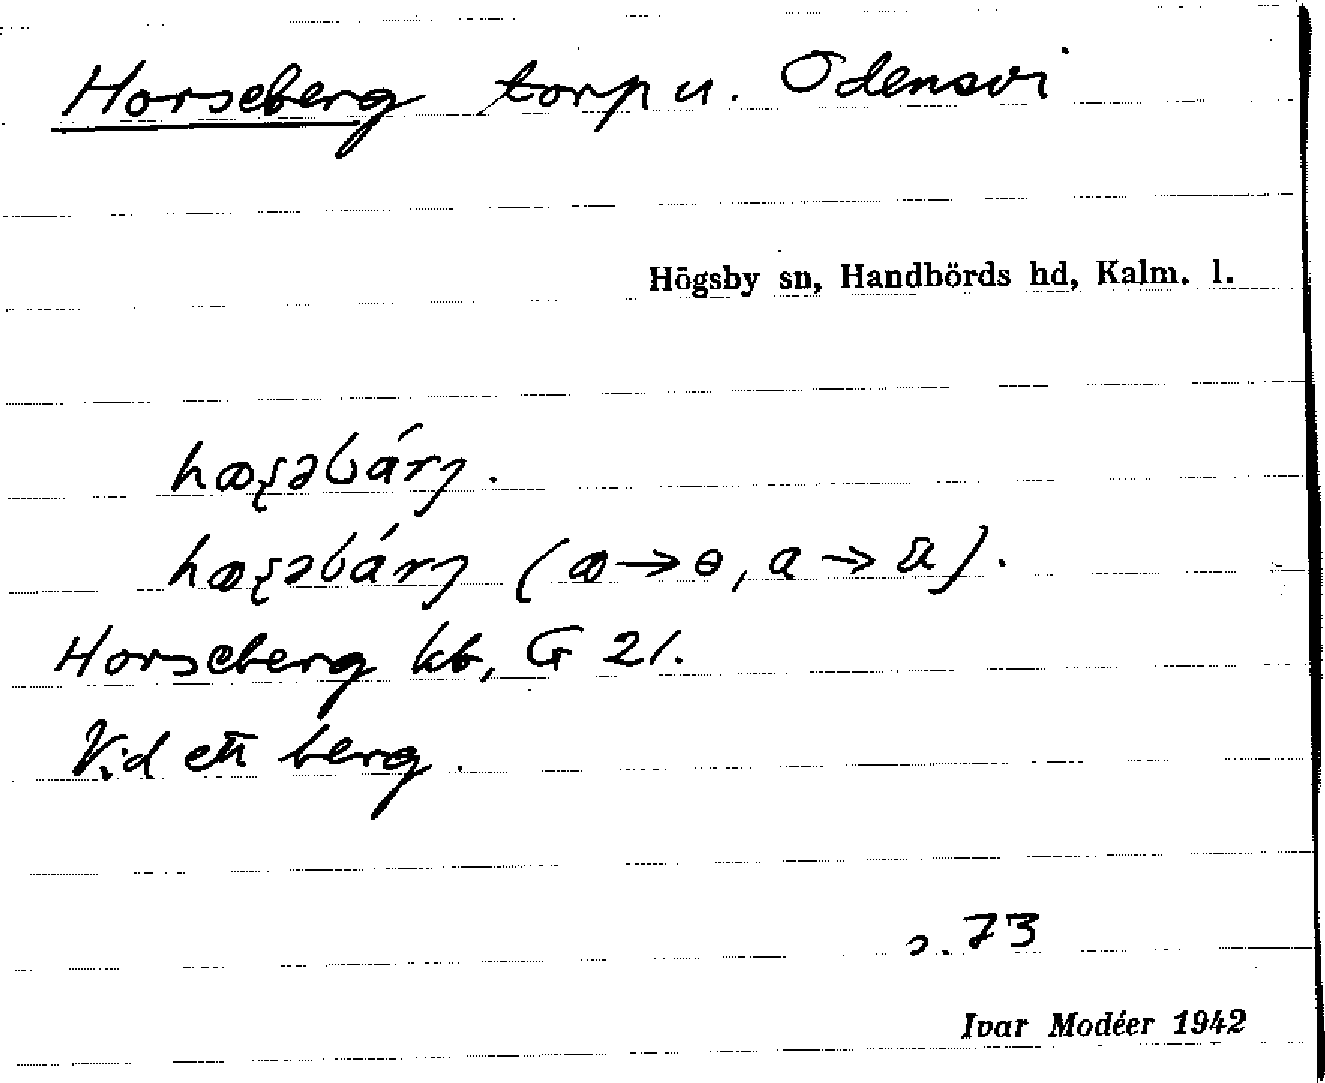 Horseberg torp u. Odensvi
Högsby sn, Handbörds hd, Kalm. l.
Horseberg kb, G 21.
Vid ett berg.
s. 73
Ivar Modéer 1942